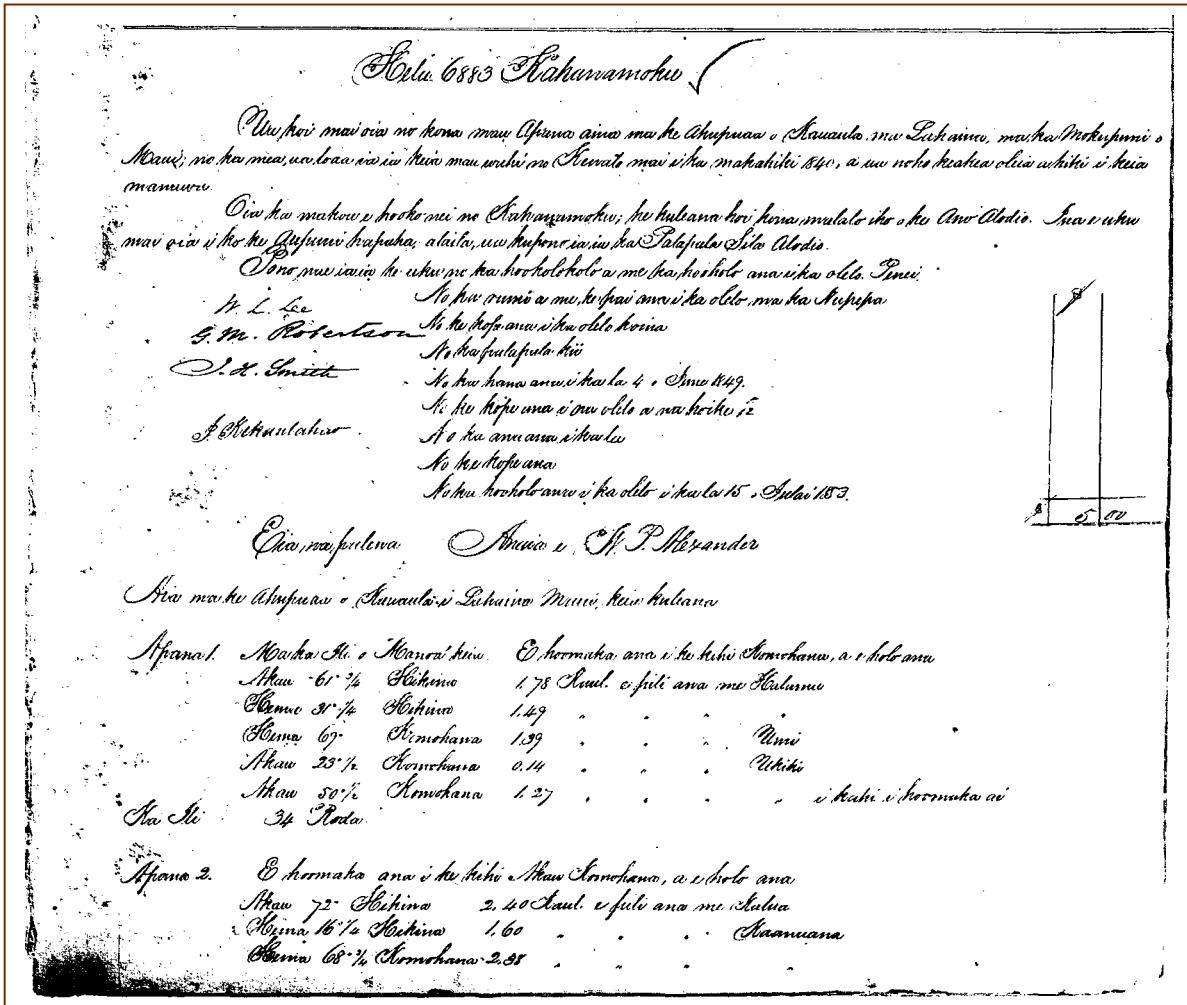 Helu 6883 Kahanamoku ✓
Ua koi mai oia no kona mau Apana aina ma ke Ahupuaa o Kauaula ma Lahaina, ma ka Mokupuni o
Maui; no ka mea, ua loaa ia ia keia mau wahi no mai i ka makahiki 1840, a ua noho keakea oleia a hiki i keia
manawa.
Oia ka makou e hooko nei no Kahanamoku; he kuleana koi kona malalo iho o ke Ano Alodio. Ina e uku
mai oia i ko ke Aupuni hapaha, alaila, ua kupono ia ia ka Palapala Sila Alodio.
Pono nae ia ia ke uku no ka hookolokolo a me ka hooholo ana i ka olelo. Penei.
W. L. Lee
G. M. Robertson
J. H. Smith
J. Kekaulahao
No ka rumi a me ke pai ana i ka olelo ma ka Nupepa
No ke kope ana i ka olelo koina
No ka palapala kii
No ka hana ana i ka la 4 o June 1849.
No ke kope ana i ka olelo a na hoike 12
No ka ana ana i ka
No ke kope ana
No ka hooholo ana i ka olelo i ka la 15 o Iulai 1853.
$
$ 5 00
Eia na palena Anaia e W. P. Alexander
Aia ma ke Ahupuaa o Kauaula i Lahaina Maui, keia kuleana
Apana 1. Ma ka Ili o Manoa keia. E hoomaka ana i ke kihi Komohana, a e holo ana
Akau 61° 3/4 Hikina 1.78 Kaul. e pili ana me Halumu
Hema 31° 1/4 Hikina 1.49 " " " "
Hema 67° Komohana 1.39 " " " Umi
Akau 23° 1/2 Komohana 0.14 " " " Ukiki
Akau 50° 1/2 Komohana 1.27 " " " " i kahi i hoomaka ai
Ka Ili 34 Roda
Apana 2. E hoomaka ana i ke kihi Akau Komohana, a e holo ana
Akau 72° Hikina 2.40 Kaul. e pili ana me Kalua
Hema 16° 1/4 Hikina 1.60 " " " Kaanuana
Hema 68° 3/4 Komohana 2.38 " " " "